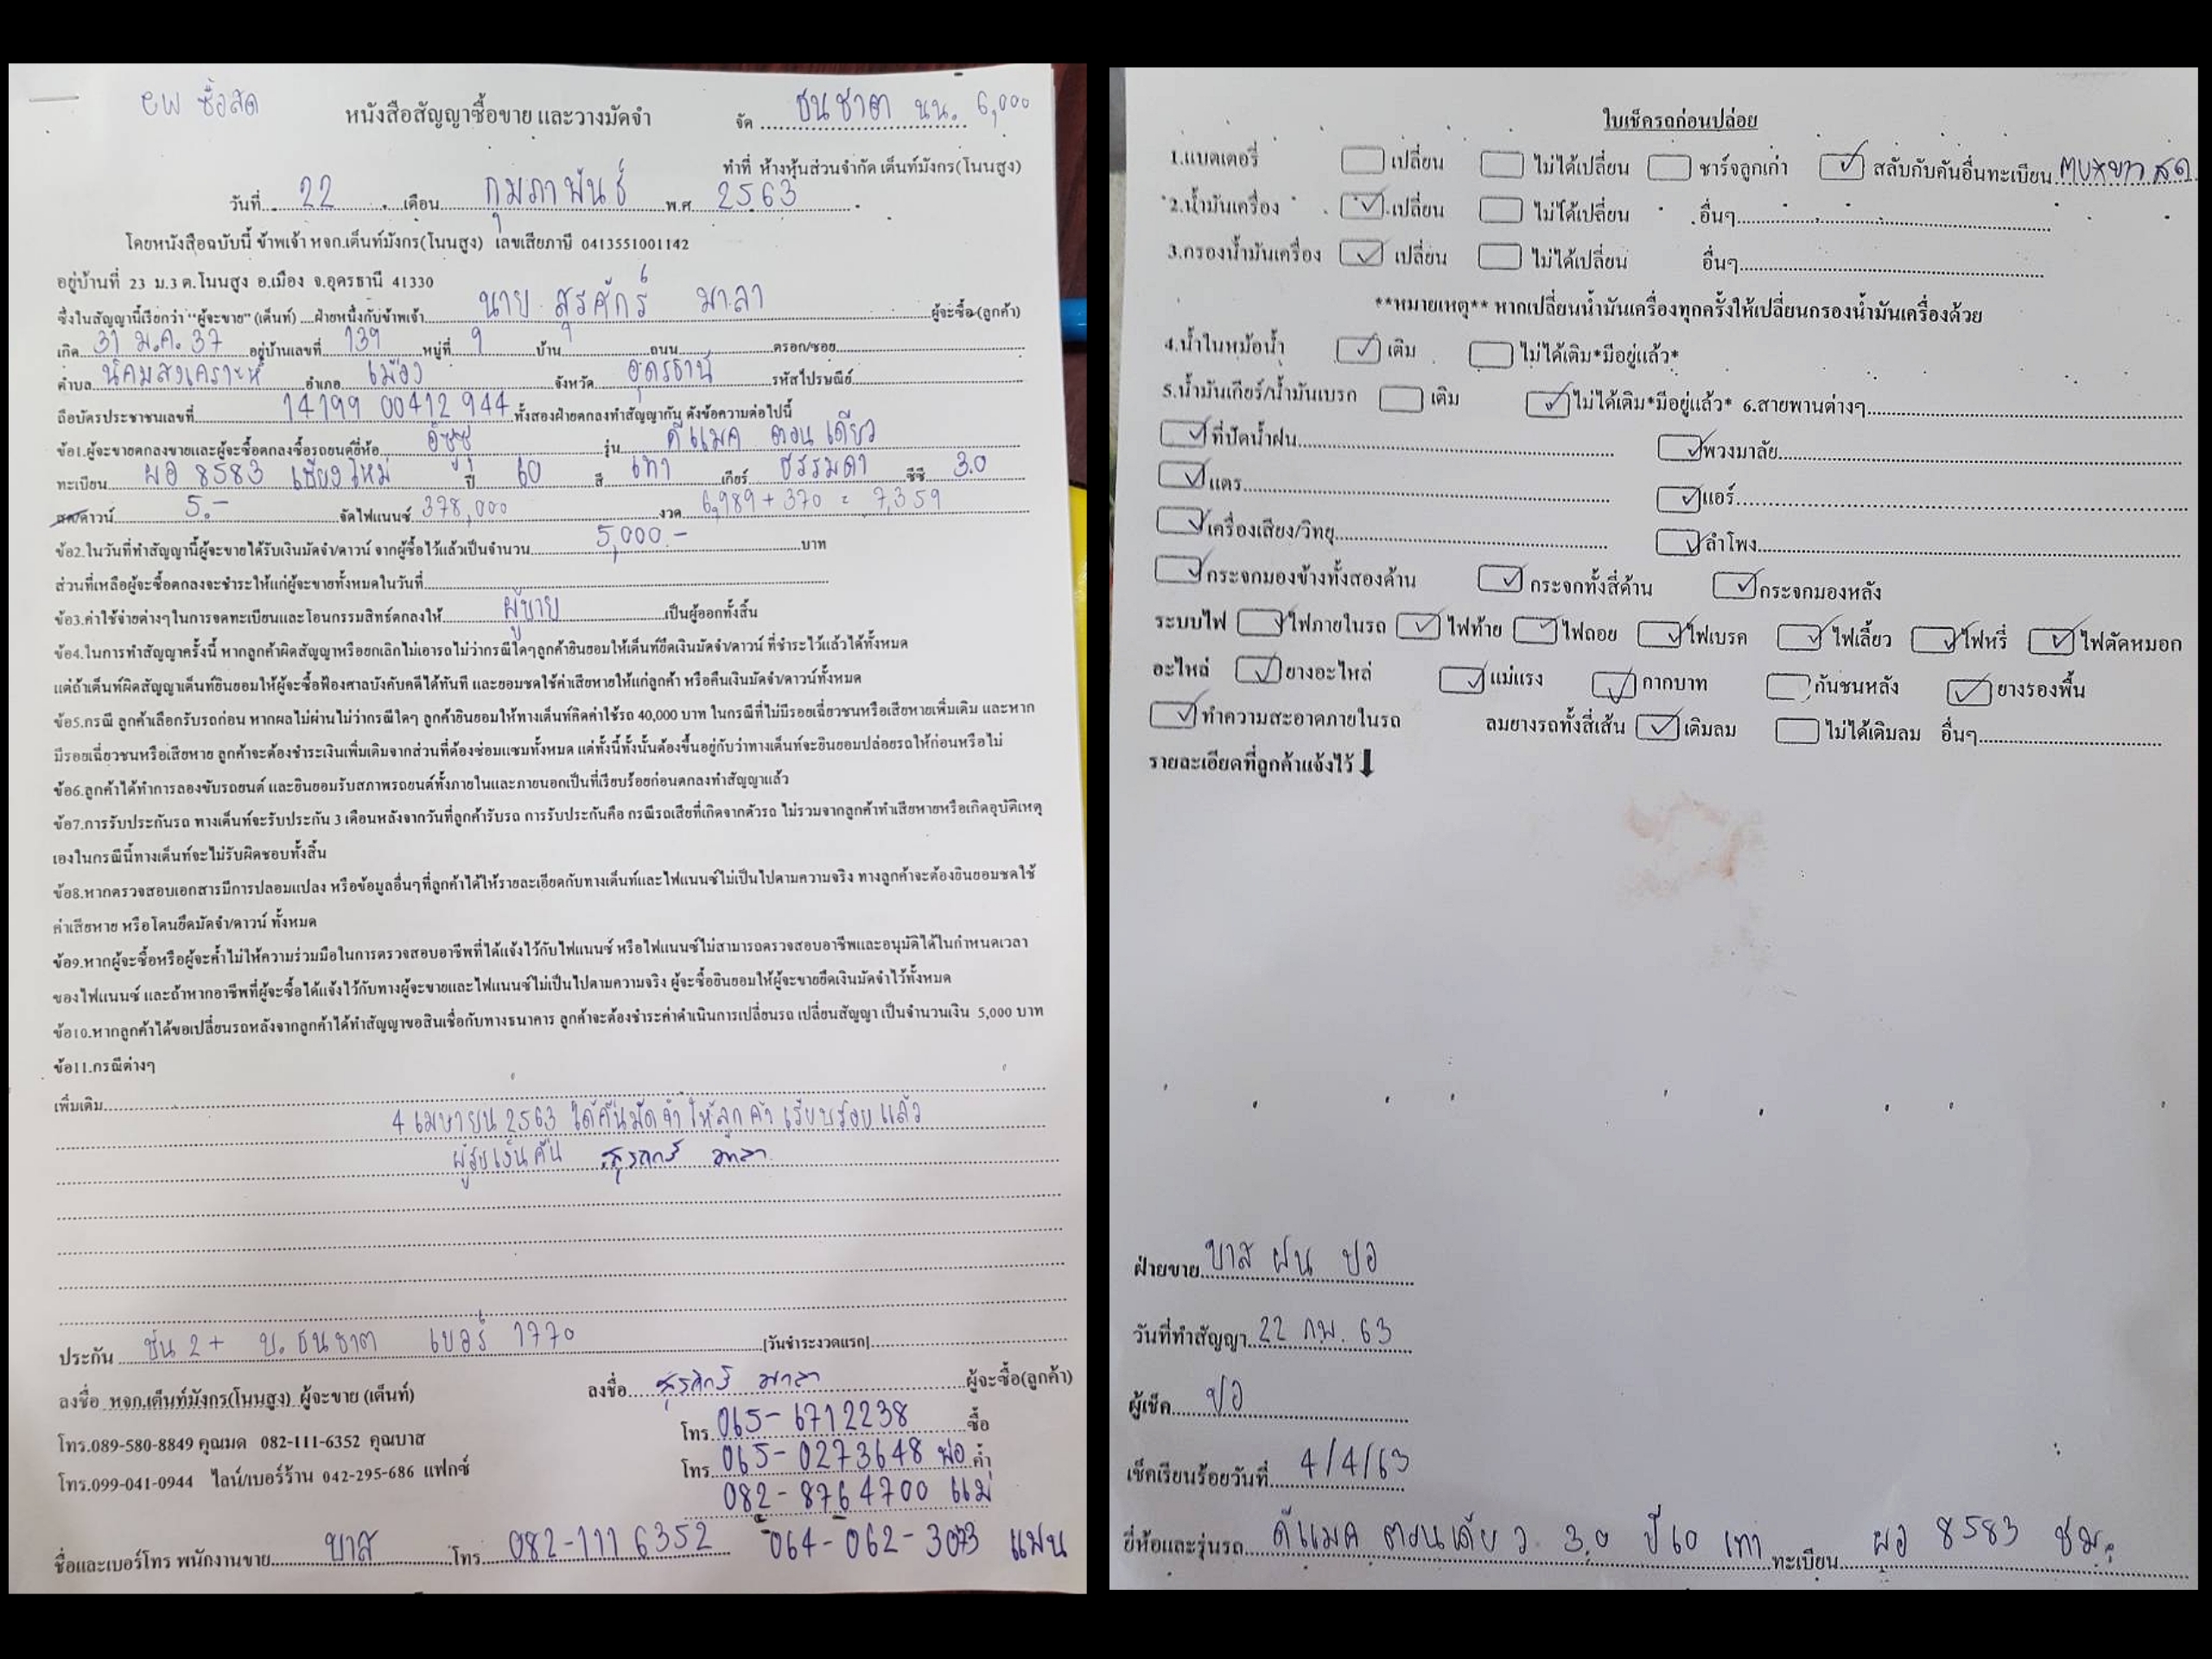 ซื้อสด
หนังสือสัญญาซื้อขาย และวางมัดจำ
จัด ธนชาต นน. 6,000
ทำที่ ห้างหุ้นส่วนจำกัด เต็นท์มังกร(โนนสูง)
วันที่ 22 เดือน กุมภาพันธ์ พ.ศ 2563
โดยหนังสือฉบับนี้ ข้าพเจ้า หจก.เต็นท์มังกร(โนนสูง) เลขเสียภาษี 0413551001142
อยู่บ้านที่ 23 ม.3 ต.โนนสูง อ.เมือง จ.อุดรธานี 41330
ซึ่งในสัญญานี้เรียกว่า "ผู้จะขาย" (เต็นท์) ....ฝ่ายหนึ่งกับข้าพเจ้า นาย สุรศักร์ มาลา ผู้จะซื้อ(ลูกค้า)
เกิด 31 ม.ค. 37 อยู่บ้านเลขที่ 139 หมู่ที่ 9 บ้าน ถนน ตรอก/ซอย
ตำบล นิคมสงเคราะห์ อำเภอ เมือง จังหวัด อุดรธานี รหัสไปรษณีย์
ถือบัตรประชาชนเลขที่ 14199 00412 944 ทั้งสองฝ่ายตกลงทำสัญญากัน ดังข้อความต่อไปนี้
ข้อ1.ผู้จะขายตกลงขายและผู้จะซื้อตกลงซื้อรถยนต์ยี่ห้อ อีซูซุ รุ่น ดีแมค ตอนเดียว
ทะเบียน ผอ 8583 เชียงใหม่ ปี 60 สี เทา เกียร์ ธรรมดา ซีซี 3.0
สด/ดาวน์ 5.- จัดไฟแนนซ์ 378,000 งวด 6,989 + 370 = 7,359
ข้อ2.ในวันที่ทำสัญญานี้ผู้จะขายได้รับเงินมัดจำ/ดาวน์ จากผู้ซื้อไว้แล้วเป็นจำนวน 5,000.- บาท
ส่วนที่เหลือผู้จะซื้อตกลงจะชำระให้แก่ผู้จะขายทั้งหมดในวันที่
ข้อ3.ค่าใช้จ่ายต่างๆในการจดทะเบียนและโอนกรรมสิทธ์ตกลงให้ ผู้ขาย เป็นผู้ออกทั้งสิ้น
ข้อ4.ในการทำสัญญาครั้งนี้ หากลูกค้าผิดสัญญาหรือยกเลิกไม่เอารถไม่ว่ากรณีใดๆลูกค้ายินยอมให้เต็นท์ยึดเงินมัดจำ/ดาวน์ ที่ชำระไว้แล้วได้ทั้งหมด
แต่ถ้าเต็นท์ผิดสัญญาเต็นท์ยินยอมให้ผู้จะซื้อฟ้องศาลบังคับคดีได้ทันที และยอมชดใช้ค่าเสียหายให้แก่ลูกค้า หรือคืนเงินมัดจำ/ดาวน์ทั้งหมด
ข้อ5.กรณี ลูกค้าเลือกรับรถก่อน หากผลไม่ผ่านไม่ว่ากรณีใดๆ ลูกค้ายินยอมให้ทางเต็นท์คิดค่าใช้รถ 40,000 บาท ในกรณีที่ไม่มีรอยเฉี่ยวชนหรือเสียหายเพิ่มเติม และหาก
มีรอยเฉี่ยวชนหรือเสียหาย ลูกค้าจะต้องชำระเงินเพิ่มเติมจากส่วนที่ต้องซ่อมแซมทั้งหมด แต่ทั้งนี้ทั้งนั้นต้องขึ้นอยู่กับว่าทางเต็นท์จะยินยอมปล่อยรถให้ก่อนหรือไม่
ข้อ6.ลูกค้าได้ทำการลองขับรถยนต์ และยินยอมรับสภาพรถยนต์ทั้งภายในและภายนอกเป็นที่เรียบร้อยก่อนตกลงทำสัญญาแล้ว
ข้อ7.การรับประกันรถ ทางเต็นท์จะรับประกัน 3 เดือนหลังจากวันที่ลูกค้ารับรถ การรับประกันคือ กรณีรถเสียที่เกิดจากตัวรถ ไม่รวมจากลูกค้าทำเสียหายหรือเกิดอุบัติเหตุ
เองในกรณีนี้ทางเต็นท์จะไม่รับผิดชอบทั้งสิ้น
ข้อ8.หากตรวจสอบเอกสารมีการปลอมแปลง หรือข้อมูลอื่นๆที่ลูกค้าได้ให้รายละเอียดกับทางเต็นท์และไฟแนนซ์ไม่เป็นไปตามความจริง ทางลูกค้าจะต้องยินยอมชดใช้
ค่าเสียหาย หรือโดนยึดมัดจำ/ดาวน์ ทั้งหมด
ข้อ9.หากผู้จะซื้อหรือผู้จะค้ำไม่ให้ความร่วมมือในการตรวจสอบอาชีพที่ได้แจ้งไว้กับไฟแนนซ์ หรือไฟแนนซ์ไม่สามารถตรวจสอบอาชีพและอนุมัติได้ในกำหนดเวลา
ของไฟแนนซ์ และถ้าหากอาชีพที่ผู้จะซื้อได้แจ้งไว้กับทางผู้จะขายและไฟแนนซ์ไม่เป็นไปตามความจริง ผู้จะซื้อยินยอมให้ผู้จะขายยึดเงินมัดจำไว้ทั้งหมด
ข้อ10.หากลูกค้าได้ขอเปลี่ยนรถหลังจากลูกค้าได้ทำสัญญาขอสินเชื่อกับทางธนาคาร ลูกค้าจะต้องชำระค่าดำเนินการเปลี่ยนรถ เปลี่ยนสัญญา เป็นจำนวนเงิน 5,000 บาท
ข้อ11.กรณีต่างๆ
เพิ่มเติม
4 เมษายน 2563 ได้คืนมัดจำให้ลูกค้าเรียบร้อยแล้ว
ผู้รับเงินคืน สุรศักร์ มาลา
ประกัน ชั้น 2+ บ. ธนชาต เบอร์ 1770 [วันชำระงวดแรก]
ลงชื่อ หจก.เต็นท์มังกร(โนนสูง) ผู้จะขาย (เต็นท์)
ลงชื่อ สุรศักร์ มาลา ผู้จะซื้อ(ลูกค้า)
โทร.089-580-8849 คุณมด 082-111-6352 คุณบาส
โทร 065-6712238 ซื้อ
โทร.099-041-0944 ไลน์/เบอร์ร้าน 042-295-686 แฟกซ์
โทร 065-0273648 พ่อ ค้ำ
082-8764700 แม่
ชื่อและเบอร์โทร พนักงานขาย บาส โทร 082-111 6352 064-062-3073 แฟน
ใบเช็ครถก่อนปล่อย
1.แบตเตอรี่ เปลี่ยน ไม่ได้เปลี่ยน ชาร์จลูกเก่า สลับกับคันอื่นทะเบียน
2.น้ำมันเครื่อง เปลี่ยน ไม่ได้เปลี่ยน อื่นๆ
3.กรองน้ำมันเครื่อง เปลี่ยน ไม่ได้เปลี่ยน อื่นๆ
**หมายเหตุ** หากเปลี่ยนน้ำมันเครื่องทุกครั้งให้เปลี่ยนกรองน้ำมันเครื่องด้วย
4.น้ำในหม้อน้ำ เติม ไม่ได้เติม*มีอยู่แล้ว*
5.น้ำมันเกียร์/น้ำมันเบรก เติม ไม่ได้เติม*มีอยู่แล้ว* 6.สายพานต่างๆ
ที่ปัดน้ำฝน พวงมาลัย
แตร แอร์
เครื่องเสียง/วิทยุ ลำโพง
กระจกมองข้างทั้งสองด้าน กระจกทั้งสี่ด้าน กระจกมองหลัง
ระบบไฟ ไฟภายในรถ ไฟท้าย ไฟถอย ไฟเบรค ไฟเลี้ยว ไฟหรี่ ไฟตัดหมอก
อะไหล่ ยางอะไหล่ แม่แรง กากบาท กันชนหลัง ยางรองพื้น
ทำความสะอาดภายในรถ ลมยางรถทั้งสี่เส้น เติมลม ไม่ได้เติมลม อื่นๆ
รายละเอียดที่ลูกค้าแจ้งไว้
ฝ่ายขาย บาส ฝน ปอ
วันที่ทำสัญญา 22 กพ. 63
ผู้เช็ค ปอ
เช็คเรียบร้อยวันที่ 4/4/63
ยี่ห้อและรุ่นรถ ดีแมค ตอนเดียว 3.0 ปี 60 เทา ทะเบียน ผอ 8583 ชม.